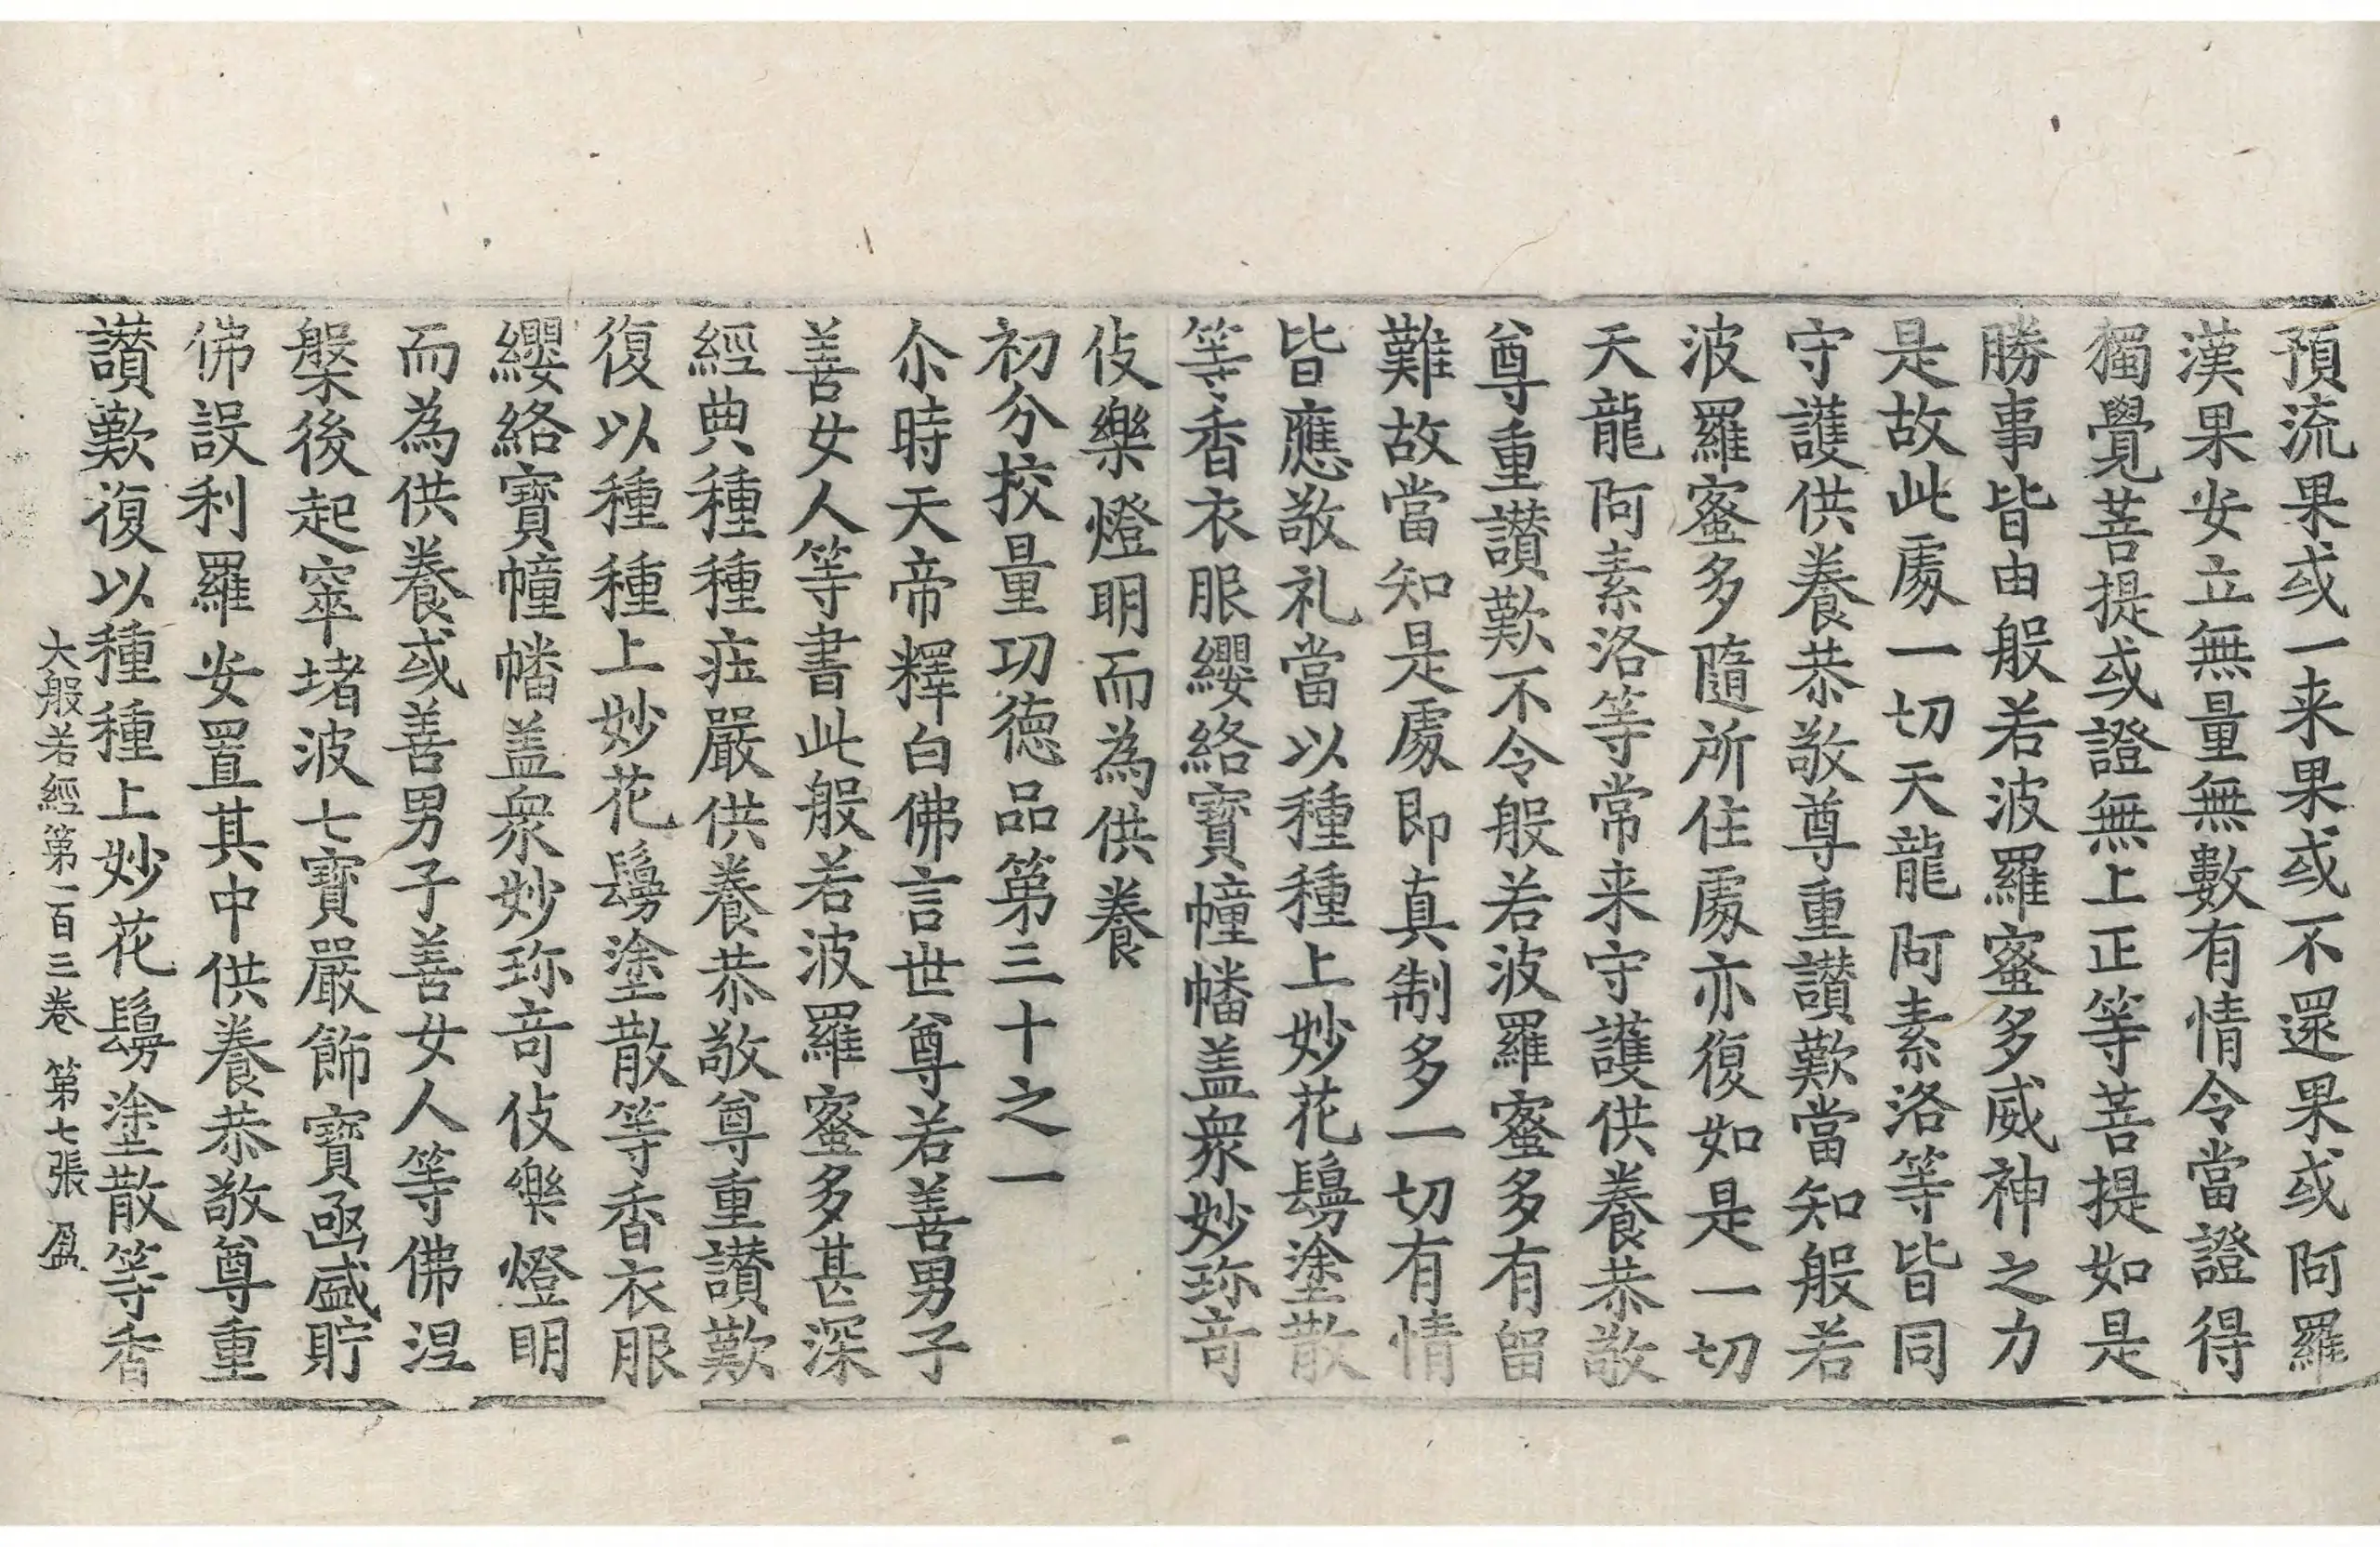 預流果或一来果或不還果或阿羅
漢果安立無量無數有情令當證得
獨覺菩提或證無上正等菩提如是
勝事皆由般若波羅蜜多威神之力
是故此處一切天龍阿素洛等皆同
守護供養恭敬尊重讃歎當知般若
波羅蜜多隨所住處亦復如是一切
天龍阿素洛等常来守護供養恭敬
尊重讃歎不令般若波羅蜜多有留
難故當知是處即真制多一切有情
皆應敬礼當以種種上妙花鬘塗散
等香衣服纓絡寶幢幡盖衆妙珎竒
伎樂燈明而為供養
初分挍量功徳品第三十之一
尒時天帝釋白佛言世尊若善男子
善女人等書此般若波羅蜜多甚深
經典種種莊嚴供養恭敬尊重讃歎
復以種種上妙花鬘塗散等香衣服
纓絡寶幢幡盖衆妙珎竒伎樂燈明
而為供養或善男子善女人等佛涅
槃後起窣堵波七寶嚴飾寶函盛貯
佛設利羅安置其中供養恭敬尊重
讃歎復以種種上妙花鬘塗散等香
大般若經第一百三卷 第七張 盈